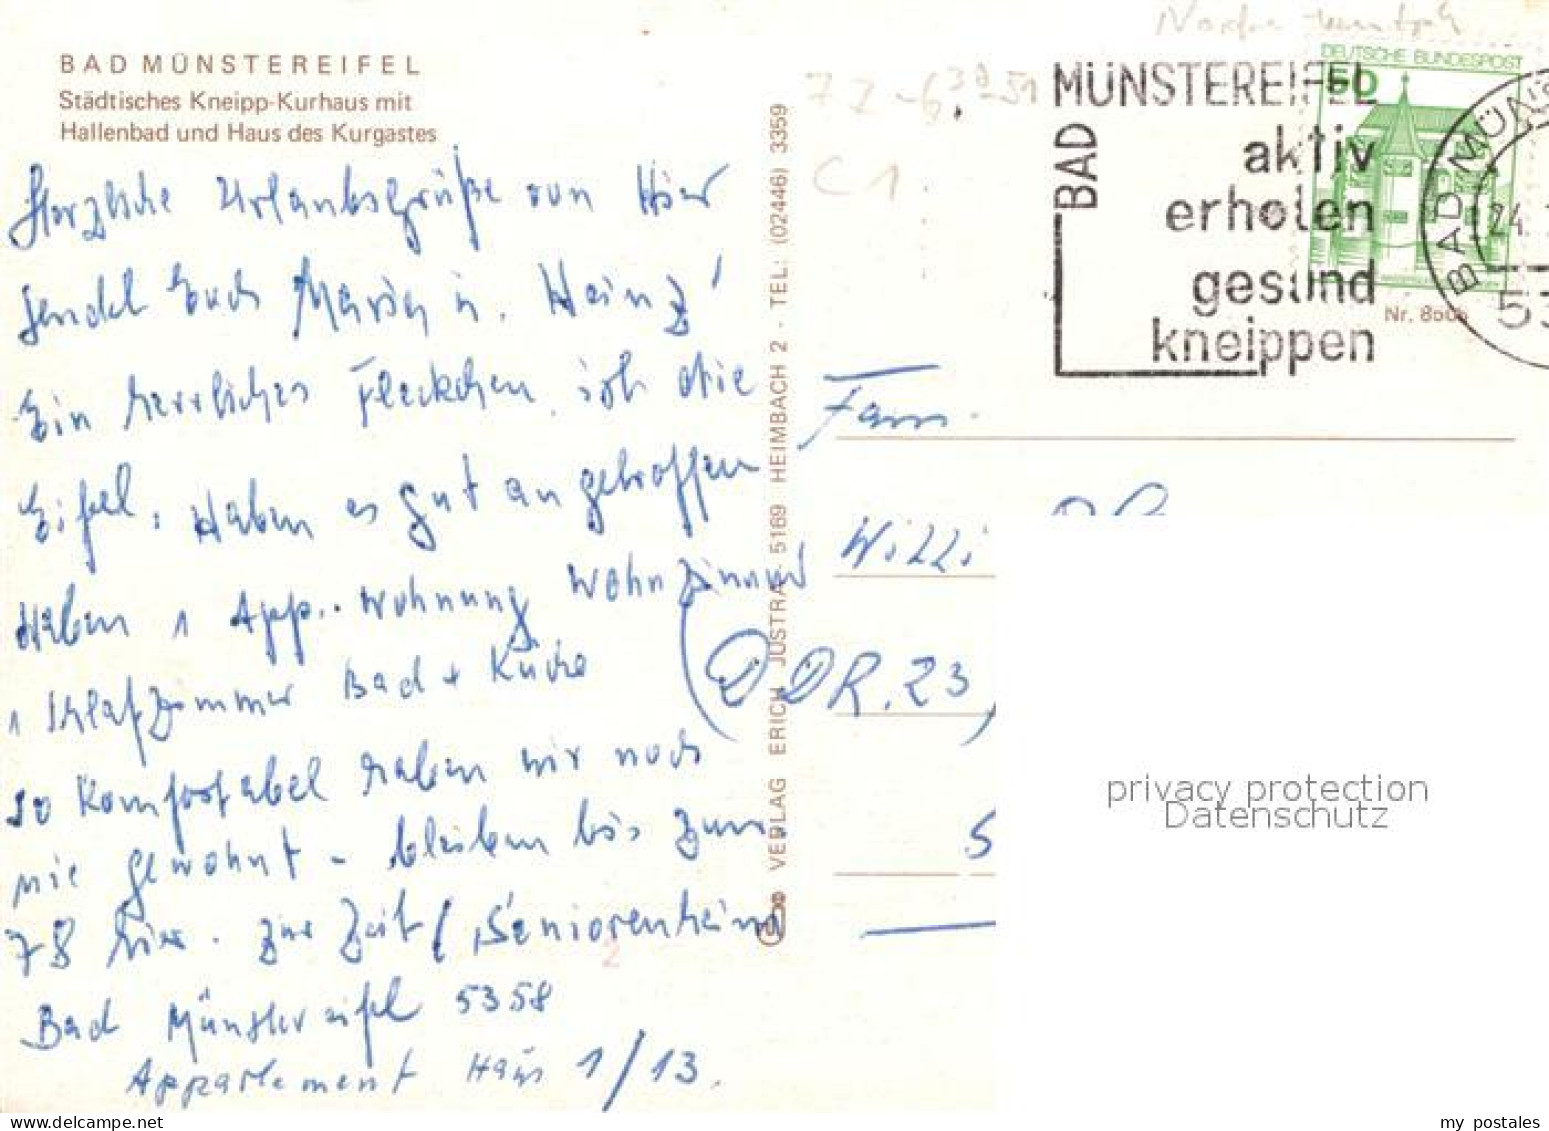 BAD MÜNSTEREIFEL
Städtisches Kneipp-Kurhaus mit
Hallenbad und Haus des Kurgastes
Herzliche Urlaubsgrüße von Hier
sendet Euch Maria u. Heinz!
Ein herrliches Fleckchen ist die
Eifel, Haben es gut angetroffen
Haben 1 App.. wohnung Wohnzimmer
1 Schlafzimmer Bad + Küche
so Komfortabel haben wir noch
nie gewohnt - bleiben bis zum
78 hier. Zur Zeit / Seniorenheim
Bad Münstereifel 5358
Appartement Haus 1/13.
VERLAG ERICH JUSTRA · 5169 HEIMBACH 2 · TEL: (02446) 3359
C1
DEUTSCHE BUNDESPOST
50
BAD MÜNSTEREIFEL
aktiv
erholen
gesund
kneippen
BAD MÜNS
24.
53
Nr. 8505
Fam.
Willi
(DDR. 23)
S
privacy protection
Datenschutz
my postales
my-postcards.delcampe.net